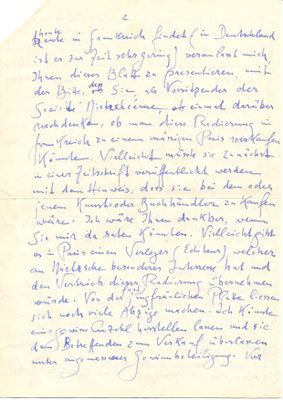 2
heute
in Frankreich findet (in Deutschland
ist er zur Zeit sehr gering) veranlasst mich,
Ihnen dieses Blatt zu presentieren, mit
der Bitte, dass Sie, als Vorsitzender der
Société Nietzschéenne, einmal darüber
nachdenken, ob man diese Radierung in
Frankreich zu einem mässigen Preis verkaufen
könnte. Vielleicht müsste sie zunächst
in einer Zeitschrift veröffentlicht werden
mit dem Hinweis, dass sie bei dem oder
jenem Kunst- oder Buchhändler zu kaufen
wäre. Ich wäre Ihnen dankbar, wenn
Sie mir da raten könnten. Vielleicht gibt
es in Paris einen Verleger (Editeur), welcher
an Nietzsche besonderes Interesse hat und
den Vertrieb dieser Radierung übernehmen
würde. Von der fast jungfräulichen Platte liessen
sich noch viele Abzüge machen. Ich könnte
eine gewisse Anzahl herstellen lassen und sie
dem Betreffenden zum Verkauf überlassen
unter angemessener Gewinnbeteiligung.